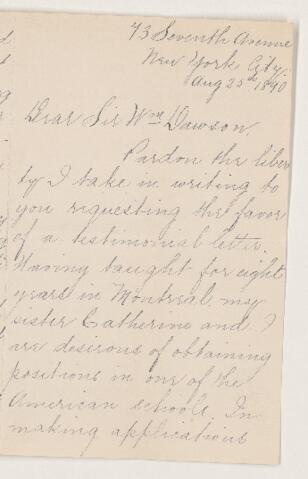 73 Seventh Avenue
New York City.
Aug 25th 1890
Dear Sir Wm Dawson,
Pardon the liber
ty I take in writing to
you requesting the favor
of a testimonial letter.
Having taught for eight
years in Montreal my
sister Catherine and I
are desirous of obtaining
positions in one of the
American schools. In
making applications